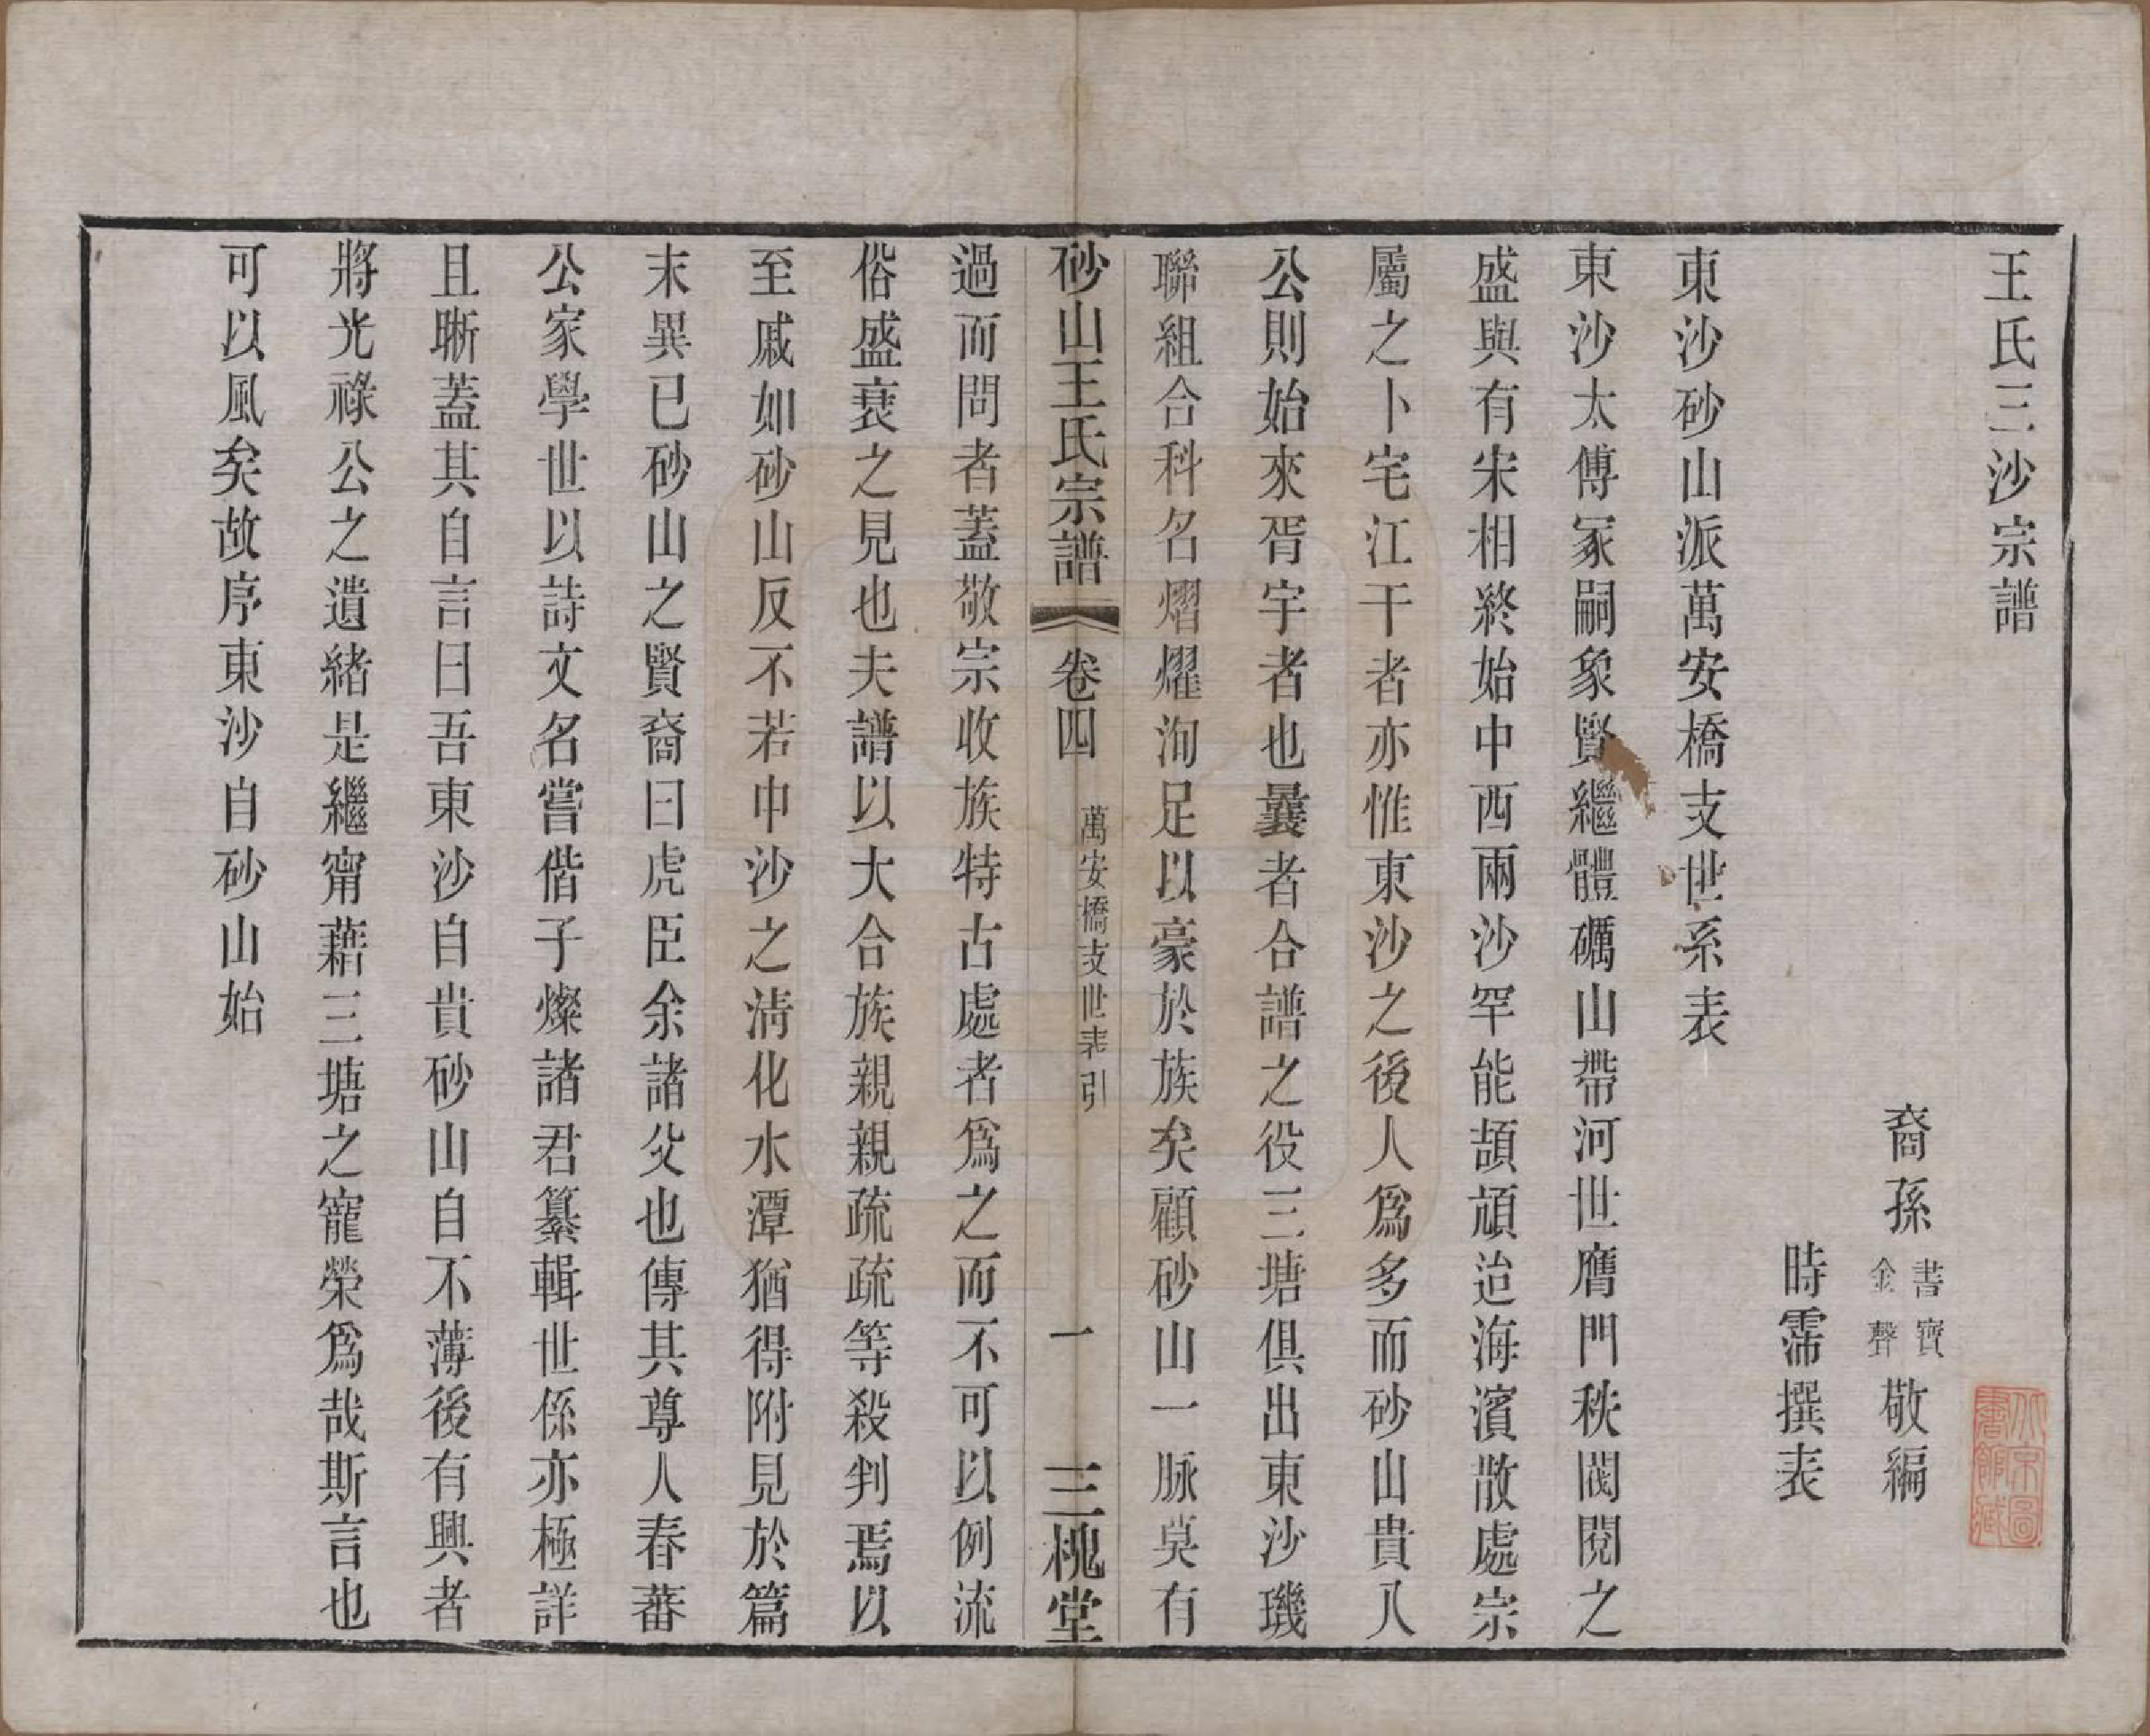 王氏三沙宗譜
裔孫書寶金聲敬編
時霈撰表
東沙砂山派萬安橋支世系表
東沙太傅冢嗣象賢繼體礪山帶河世膺門秩閥閱之
盛與有宋相終始中西兩沙罕能頡頏迨海濱散處宗
屬之卜宅江干者亦惟東沙之後人爲多而砂山貴八
公則始來胥宇者也曩者合譜之役三塘俱出東沙璣
聯組合科名熠燿洵足以豪於族矣顧砂山一脉莫有
砂山王氏宗譜 卷四 萬安橋支世表引 一 三槐堂
過而問者蓋敬宗收族特古處者爲之而不可以例流
俗盛衰之見也夫譜以大合族親親疏疏等殺判焉以
至戚如砂山反不若中沙之清化水潭猶得附見於篇
末異已砂山之賢裔曰虎臣余諸父也傳其尊人春蕃
公家學世以詩文名嘗偕子燦諸君纂輯世係亦極詳
且晰蓋其自言曰吾東沙自貴砂山自不薄後有興者
將光祿公之遺緒是繼甯藉三塘之寵榮爲哉斯言也
可以風矣故序東沙自砂山始
北京圖書館藏